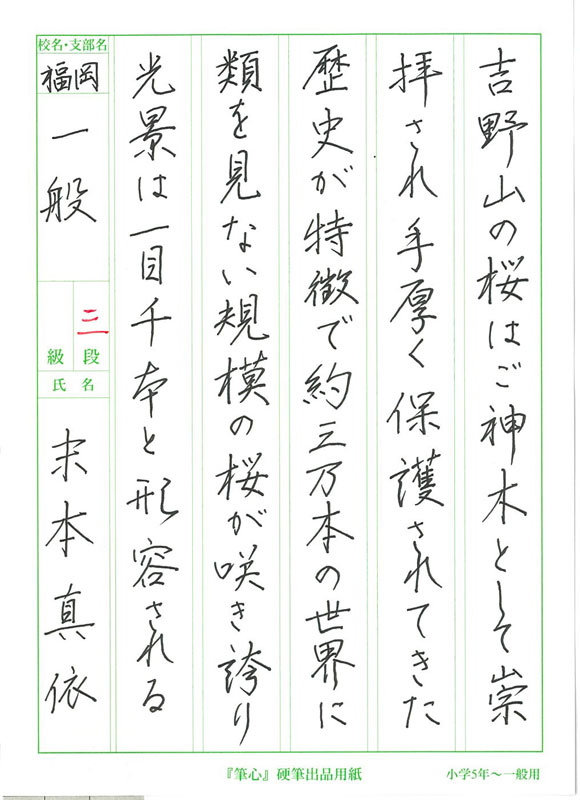 吉野山の桜はご神木として崇
拝され手厚く保護されてきた
歴史が特徴で約三万本の世界に
類を見ない規模の桜が咲き誇り
光景は一目千本と形容される
校名・支部名
福岡
一般
三
段
級
氏名
末本真依
『筆心』硬筆出品用紙
小学5年〜一般用